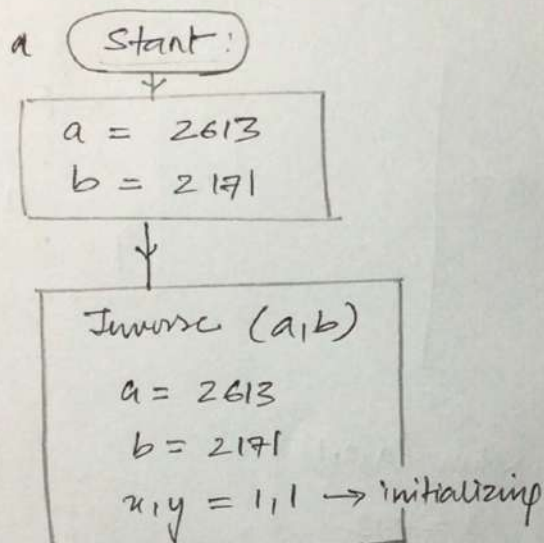 a Start:
a = 2613
b = 2171
Inverse (a,b)
a = 2613
b = 2171
x,y = 1,1 → initializing